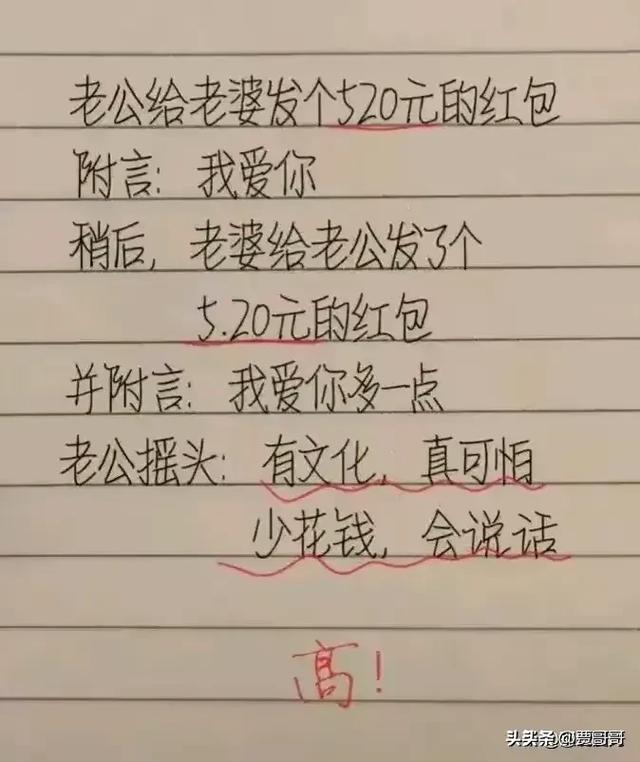 老公给老婆发个520元的红包
附言：我爱你
稍后，老婆给老公发了个
5.20元的红包
并附言：我爱你多一点
老公摇头：有文化，真可怕
少花钱，会说话
高！
头头条@贾哥哥